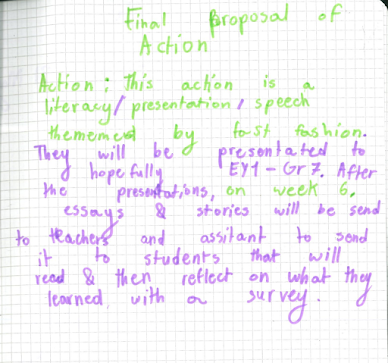 Final Proposal of
Action
Action : This action is a
literacy / presentation / speech
thememed by fast fashion.
They will be presentated to
hopefully EY1 - Gr 7. After
the presentations, on week 6,
essays & stories will be send
to teachers and assitant to send
it to students that will
read & then reflect on what they
learned with a survey.